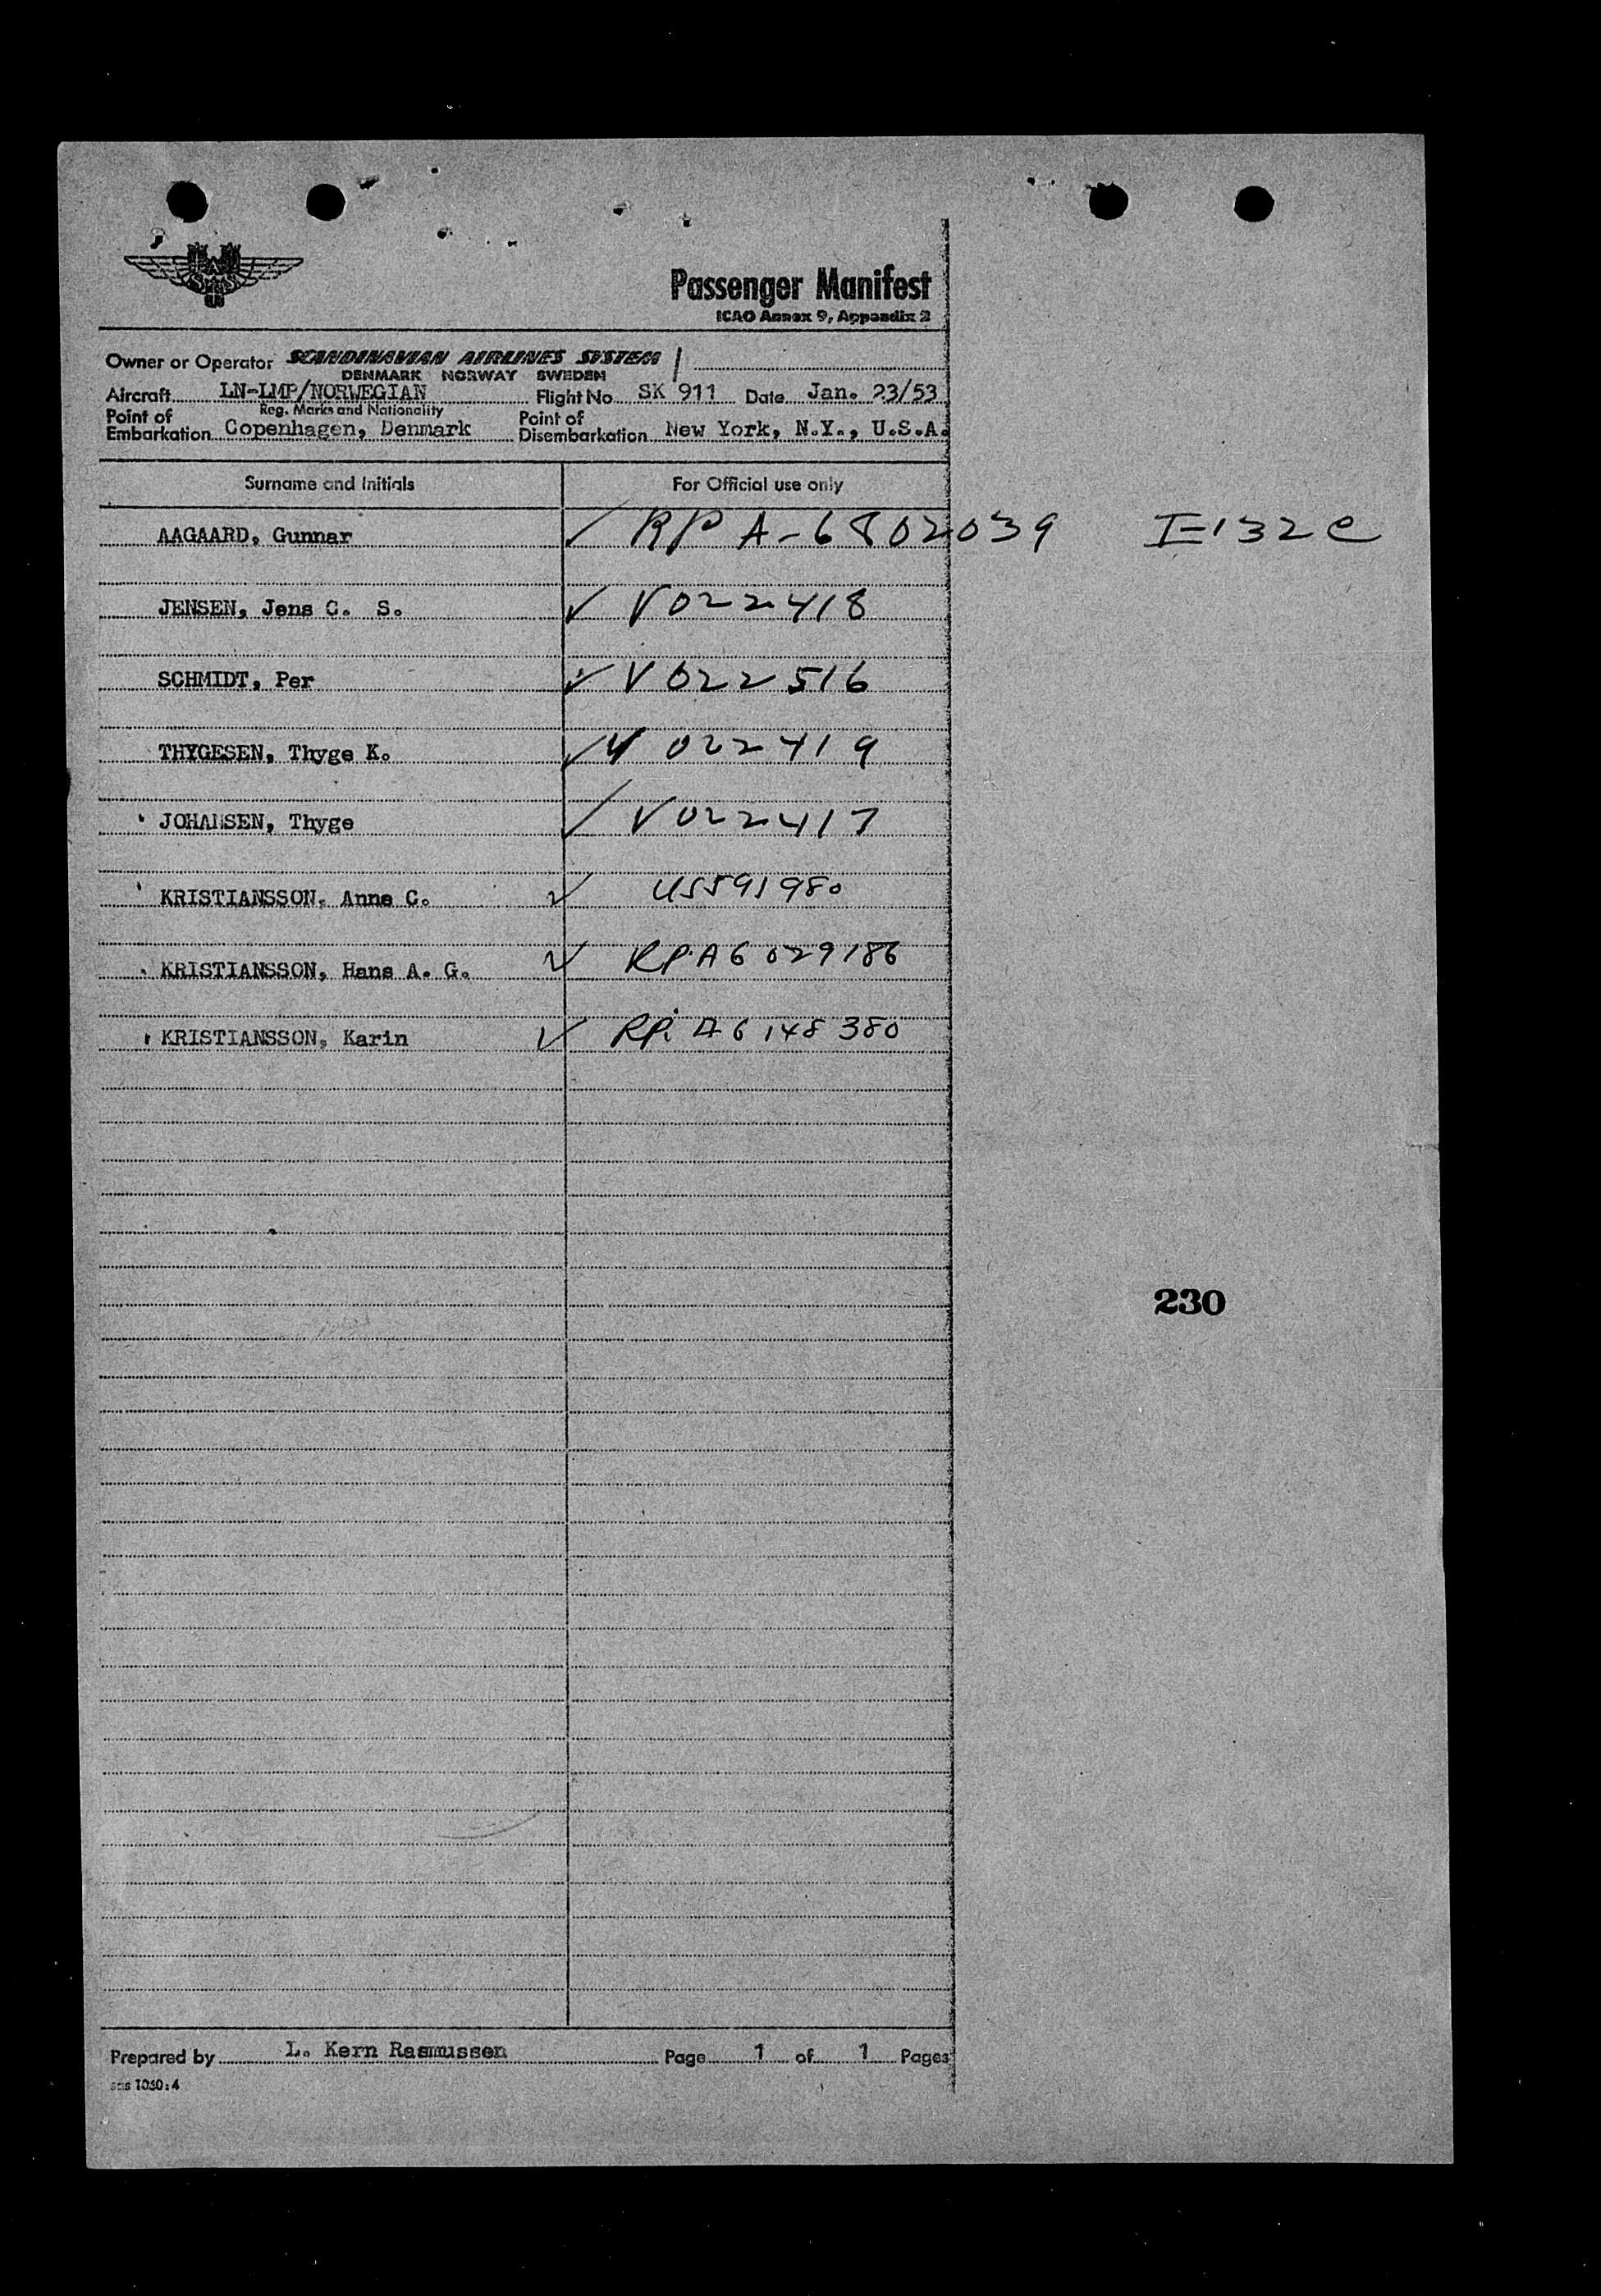 SAS
Passenger Manifest
ICAO Annex 9, Appendix 2
Owner or Operator SCANDINAVIAN AIRLINES SYSTEM
DENMARK NORWAY SWEDEN
Aircraft LN-LMP/NORWEGIAN Flight No SK 911 Date Jan. 23/53
Reg. Marks and Nationality
Point of Embarkation Copenhagen, Denmark Point of Disembarkation New York, N.Y., U.S.A.
Surname and Initials For Official use only
AAGAARD, Gunnar RP A-6802039 I-132e
JENSEN, Jens C. S. V022418
SCHMIDT, Per V022516
THYGESEN, Thyge K. V 022419
JOHANSEN, Thyge V022417
KRISTIANSSON, Anne C. US591980
KRISTIANSSON, Hans A. G. RP.A6029186
KRISTIANSSON, Karin RP. A6148380
230
Prepared by L. Kern Rasmussen Page 1 of 1 Pages
sas 1030:4